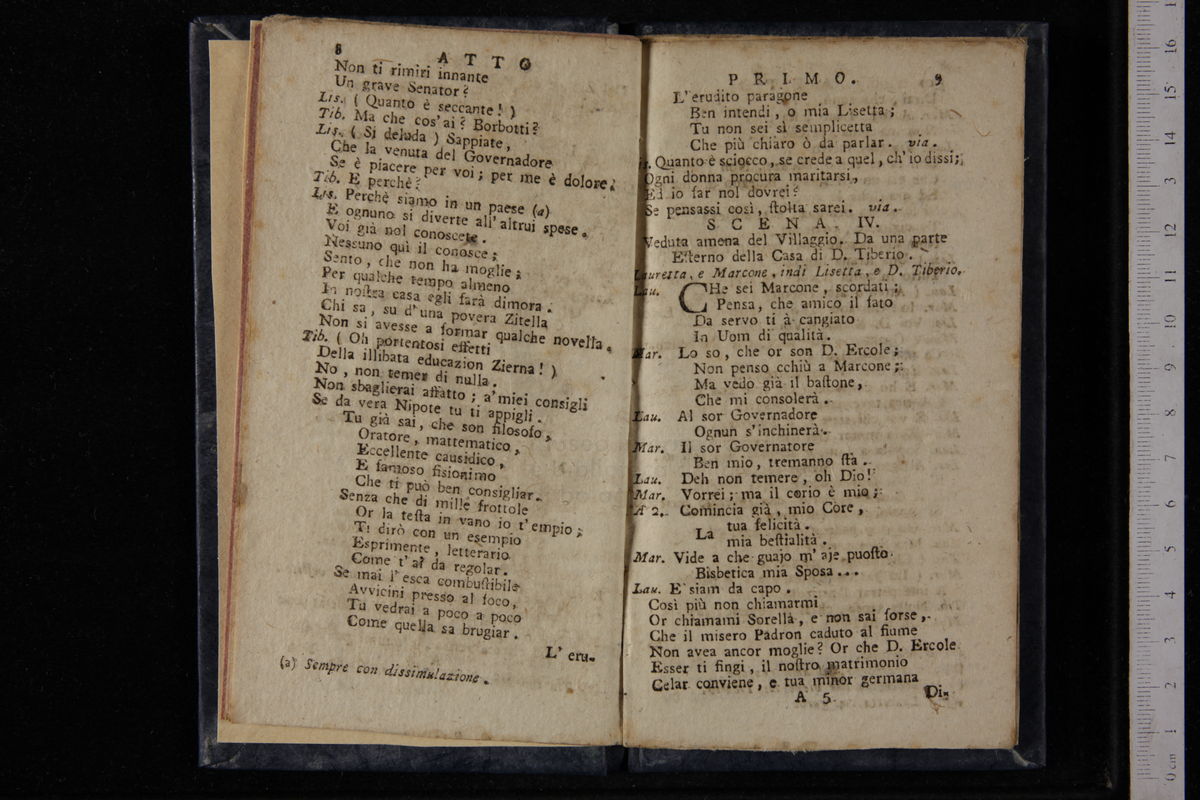 8 ATTO
Non ti rimiri innante
Un grave Senator?
Lis. ( Quanto è seccante! )
Tib. Ma che cos'ai? Borbotti?
Lis. ( Si deluda ) Sappiate,
Che la venuta del Governadore
Se è piacere per voi; per me è dolore.
Tib. E perchè?
Lis. Perchè siamo in un paese (a)
E ognuno si diverte all'altrui spese.
Voi già nol conoscete.
Nessuno quì il conosce;
Sento, che non ha moglie;
Per qualche tempo almeno
In nostra casa egli farà dimora.
Chi sa, su d'una povera Zitella
Non si avesse a formar qualche novella.
Tib. ( Oh portentosi effetti
Della illibata educazion Zierna! )
No, non temer di nulla.
Non sbaglierai affatto; a'miei consigli
Se da vera Nipote tu ti appigli.
Tu già sai, che son filosofo,
Oratore, mattematico,
Eccellente causidico,
E famoso fisionimo
Che ti può ben consigliar.
Senza che di mille frottole
Or la testa in vano io t'empio;
Ti dirò con un esempio
Esprimente, letterario
Come t'ai da regolar.
Se mai l'esca combustibile
Avvicini presso al foco,
Tu vedrai a poco a poco
Come quella sa brugiar.
L' eru-
(a) Sempre con dissimulazione.
PRIMO. 9
L'erudito paragone
Ben intendi, o mia Lisetta;
Tu non sei sì semplicetta
Che più chiaro ò da parlar. via.
is. Quanto è sciocco, se crede a quel, ch'io dissi;
Ogni donna procura maritarsi,
Ed io far nol dovrei?
Se pensassi così, stolta sarei. via.
SCENA IV.
Veduta amena del Villaggio. Da una parte
Esterno della Casa di D. Tiberio.
Lauretta, e Marcone, indi Lisetta, e D. Tiberio.
Lau. CHe sei Marcone, scordati;
Pensa, che amico il fato
Da servo ti à cangiato
In Uom di qualità.
Mar. Lo so, che or son D. Ercole;
Non penso cchiù a Marcone;
Ma vedo già il bastone,
Che mi consolerà.
Lau. Al sor Governadore
Ognun s'inchinerà.
Mar. Il sor Governatore
Ben mio, tremanno sta.
Lau. Deh non temere, oh Dio!
Mar. Vorrei; ma il corio è mio;
A 2. Comincia già, mio Core,
La tua felicità.
mia bestialità.
Mar. Vide a che guajo m'aje puosto
Bisbetica mia Sposa...
Lau. E siam da capo.
Così più non chiamarmi
Or chiamami Sorella, e non sai forse,
Che il misero Padron caduto al fiume
Non avea ancor moglie? Or che D. Ercole
Esser ti fingi, il nostro matrimonio
Celar conviene, e tua minor germana
A 5 Di-